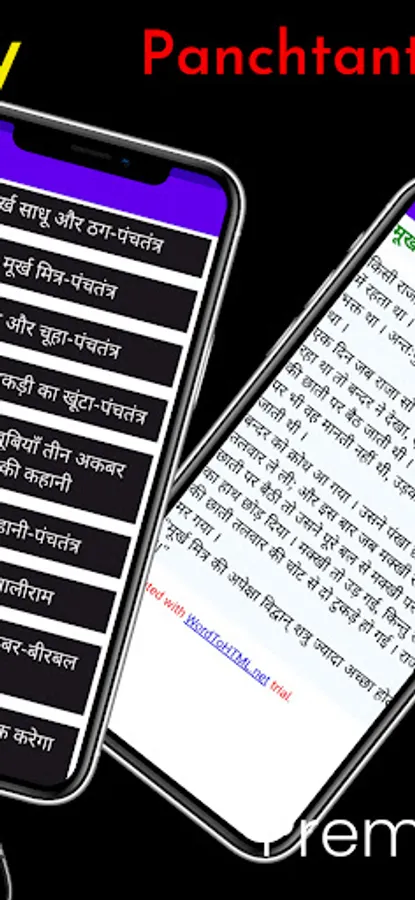 y
Panchtant
र्ख साधू और ठग-पंचतंत्र
मूर्ख मित्र-पंचतंत्र
और चूहा-पंचतंत्र
कड़ी का खूंटा-पंचतंत्र
तीन अकबर
की कहानी
हानी-पंचतंत्र
नालीराम
बर-बीरबल
करेगा
मूर्ख
किसी राज
में रहता था
भक्त था । अन्त
था ।
एक दिन जब राजा
रहा था तो बन्दर ने देखा,
की छाती पर बैठ जाती थी ।
पर भी वह मानती नहीं थी, उड़
जाती थी ।
बन्दर को क्रोध आ गया । उसने पंखा
तलवार ले ली; और इस बार जब मक्खी
छाती पर बैठी तो उसने पूरे बल से मक्खी प
का हाथ छोड़ दिया । मक्खी तो उड़ गई, किन्तु
की छाती तलवार की चोट से दो टुकड़े हो गई । रा
मर गया ।
"मूर्ख मित्र की अपेक्षा विद्वान् शत्रु ज्यादा अच्छा हो
।"
ted with WordToHTML.net trial.
Prem